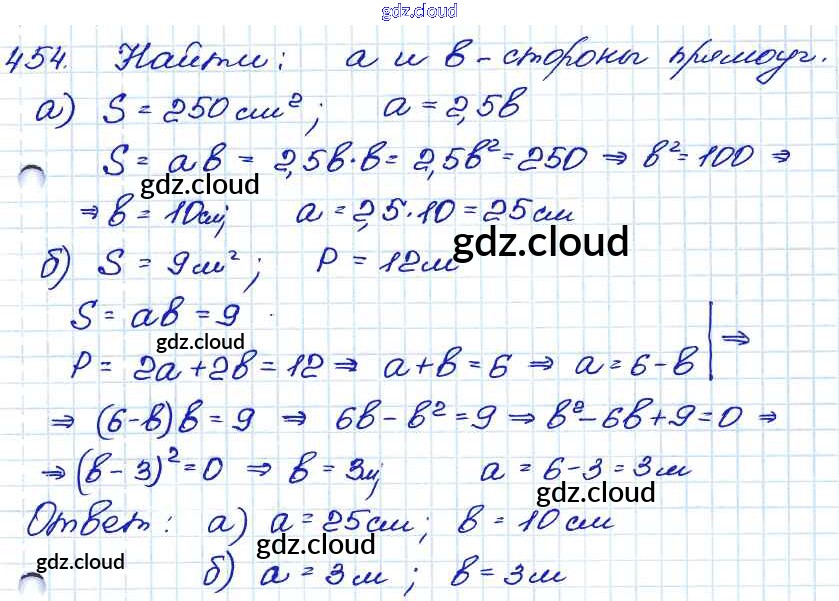 gdz.cloud
454. Найти: a и b - стороны прямоуг.
а) S = 250 см²; a = 2,5b
S = ab = 2,5b·b = 2,5b² = 250 ⇒ b² = 100 ⇒
gdz.cloud
⇒ b = 10см; a = 2,5·10 = 25 см
gdz.cloud
б) S = 9 м²; P = 12м
S = ab = 9
gdz.cloud
P = 2a + 2b = 12 ⇒ a + b = 6 ⇒ a = 6 - b | ⇒
⇒ (6 - b) b = 9 ⇒ 6b - b² = 9 ⇒ b² - 6b + 9 = 0 ⇒
⇒ (b - 3)² = 0 ⇒ b = 3м; a = 6 - 3 = 3 м
gdz.cloud
Ответ: а) a = 25 см; b = 10 см
gdz.cloud gdz.cloud
б) a = 3 м; b = 3 м